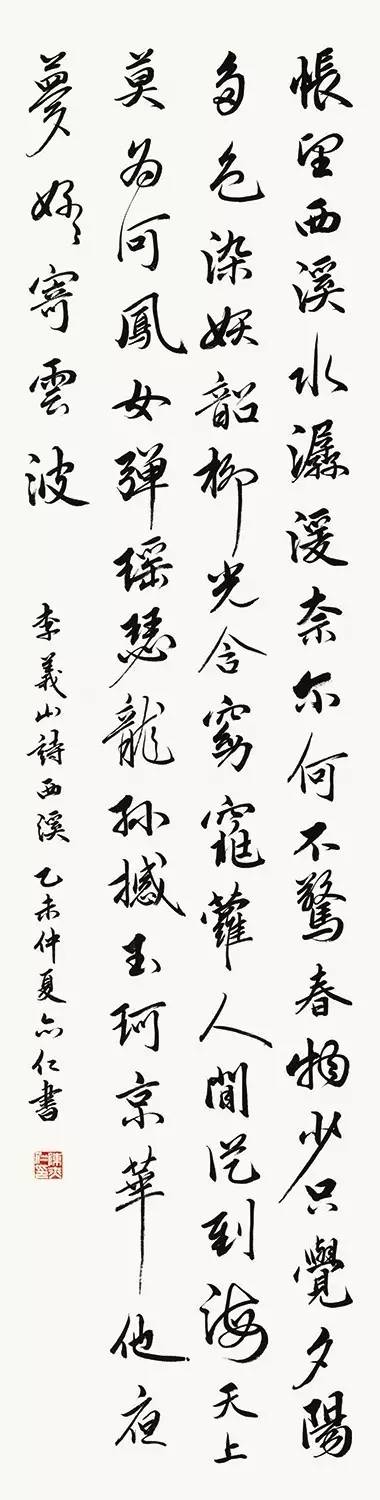 帳望西溪水潺湲奈尔何不驚春物少只覺夕陽
多色染妖韶柳光含窈窕蘿人間從到海天上
莫為河鳳女彈瑤瑟龍孫撼玉珂京華他夜
夢好好寄雲波
李義山詩西溪 乙未仲夏亦仁書